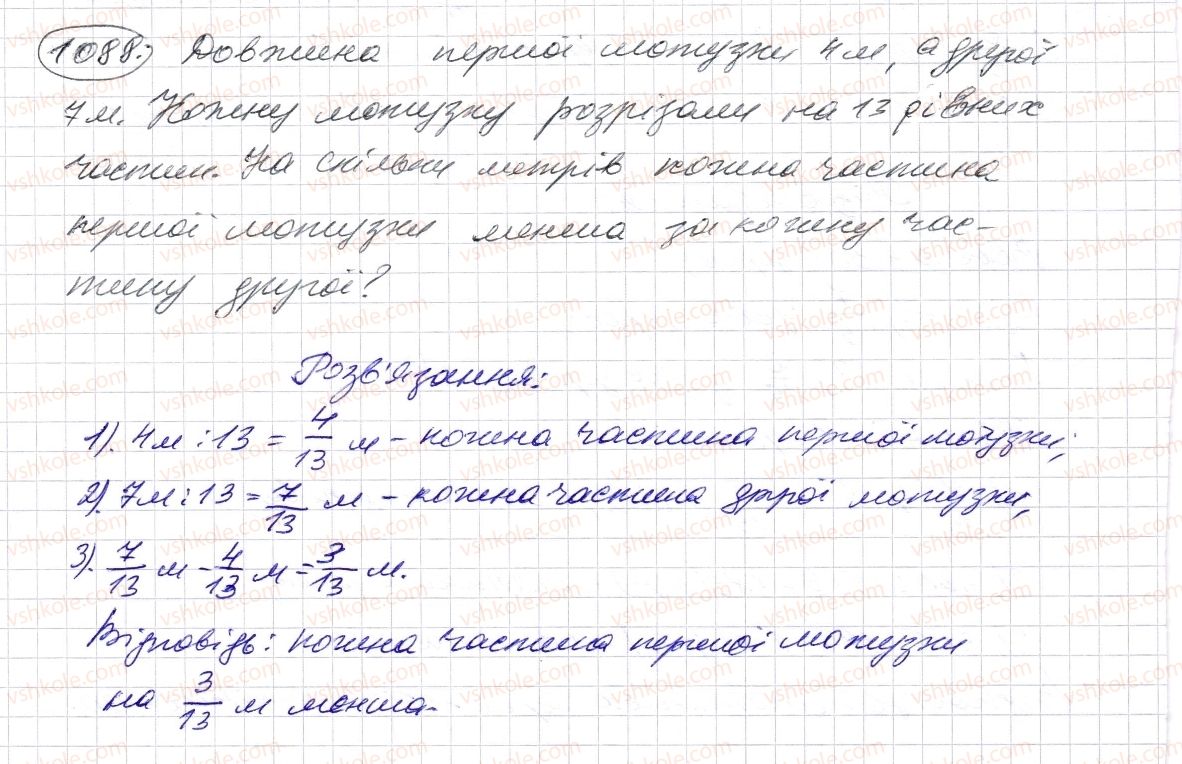 1088. Довжина першої мотузки 4 м, а другої
7 м. Кожну мотузку розрізали на 13 рівних
частин. На скільки метрів кожна частина
першої мотузки менша за кожну час-
тину другої?
Розв'язання:
1). 4м : 13 = 4/13 м - кожна частина першої мотузки;
2). 7м : 13 = 7/13 м - кожна частина другої мотузки,
3). 7/13 м - 4/13 м = 3/13 м.
Відповідь: кожна частина першої мотузки
на 3/13 м менша.
vshkole.com